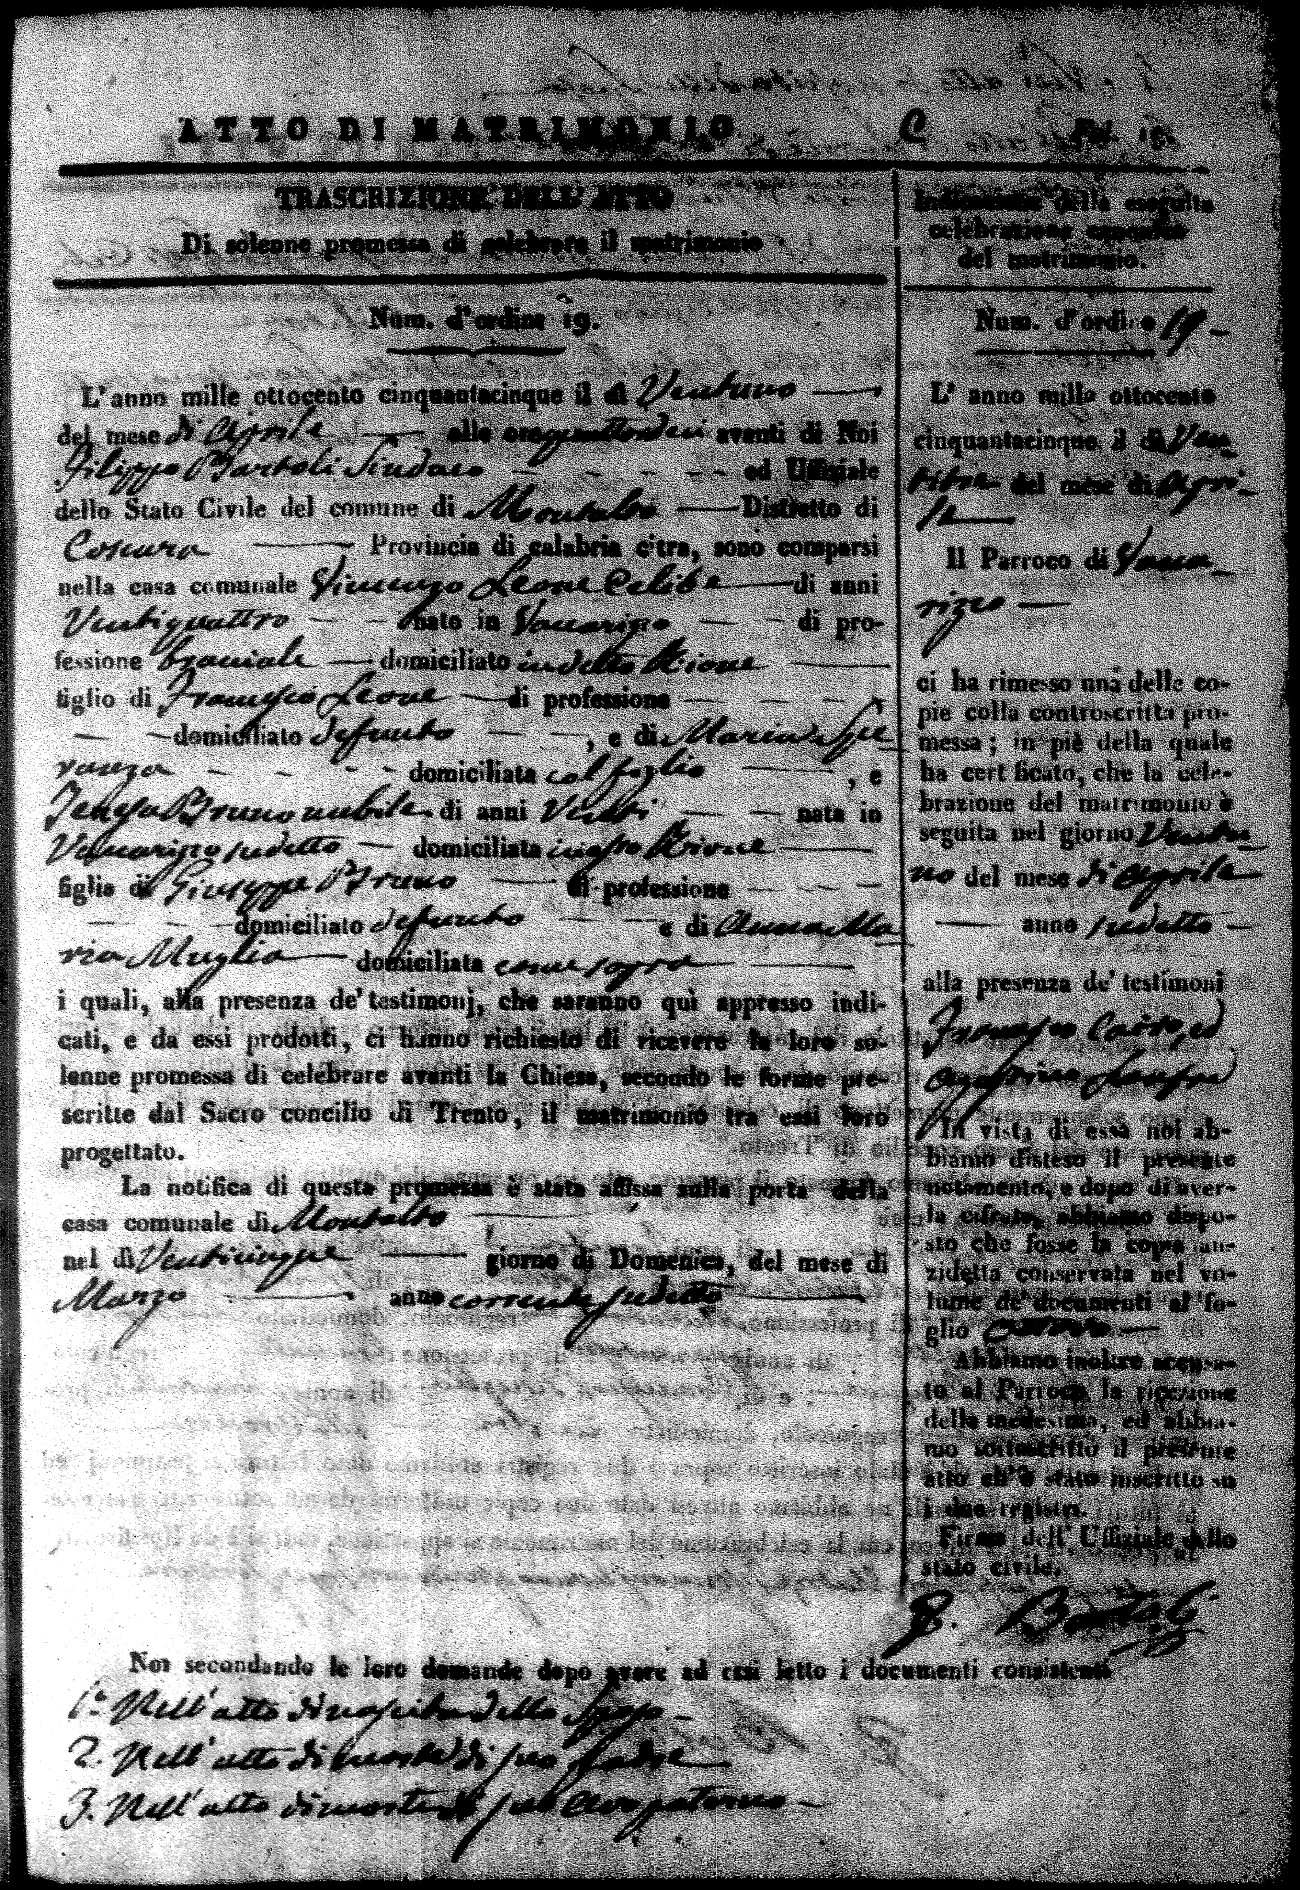 ATTO DI MATRIMONIO
C
TRASCRIZIONE DELL' ATTO
Di solenne promessa di celebrare il matrimonio
Num. d'ordine 19.
L' anno mille ottocento cinquantacinque il dì Ventuno
del mese di Aprile alle ore quattordici avanti di Noi
Filippo Bartoli Sindaco ed Uffiziale
dello Stato Civile del comune di Montalto Distretto di
Cosenza Provincia di calabria citra, sono comparsi
nella casa comunale Vincenzo Leone Celibe di anni
Ventiquattro nato in Vaccarizzo di pro-
fessione bracciale domiciliato in detto Rione
figlio di Francesco Leone di professione
domiciliato defunto , e di Maria Spe
ranza domiciliata col figlio , e
Tenesa Bruno nubile di anni Venti nata in
Vaccarizzo sudetto domiciliata in esso Rione
figlia di Giuseppe Bruno di professione
domiciliato defunto e di Anna Ma
ria Muglia domiciliata come sopra
i quali, alla presenza de' testimonj, che saranno quì appresso indi-
cati, e da essi prodotti, ci hanno richiesto di ricevere la loro so-
lenne promessa di celebrare avanti la Chiesa, secondo le forme pre-
scritte dal Sacro concilio di Trento, il matrimonio tra essi loro
progettato.
La notifica di questa promessa è stata affissa sulla porta della
casa comunale di Montalto
nel dì Venticinque giorno di Domenica, del mese di
Marzo anno corrente sudetto
Indicazione della eseguita
celebrazione
del matrimonio.
Num. d'ordine 19
L' anno mille ottocento
cinquantacinque il dì Ven
titre del mese di Apri
le
Il Parroco di Vacca
rizzo
ci ha rimesso una delle co-
pie colla controscritta pro-
messa; in piè della quale
ha certificato, che la cele-
brazione del matrimonio è
seguita nel giorno Ventu
no del mese di Aprile
anno sudetto
alla presenza de' testimoni
Francesco ed
Agostino
In vista di essa noi ab-
biamo disteso il presente
notamento, e dopo di aver-
la cifrata, abbiamo dispo-
sto che fosse la copia an-
zidetta conservata nel vo-
lume de' documenti al fo-
glio
Abbiamo inoltre accusa-
to al Parroco la ricezione
della medesima, ed abbia-
mo sottoscritto il presente
atto ch'è stato inscritto su
i due registri.
Firma dell' Uffiziale dello
stato civile.
F. Bartoli
Noi secondando le loro domande dopo avere ad essi letto i documenti consistenti
1.° Nell' atto di nascita dello Sposo
2. Nell' atto di morte di suo padre
3. Nell' atto di morte di suo avo paterno